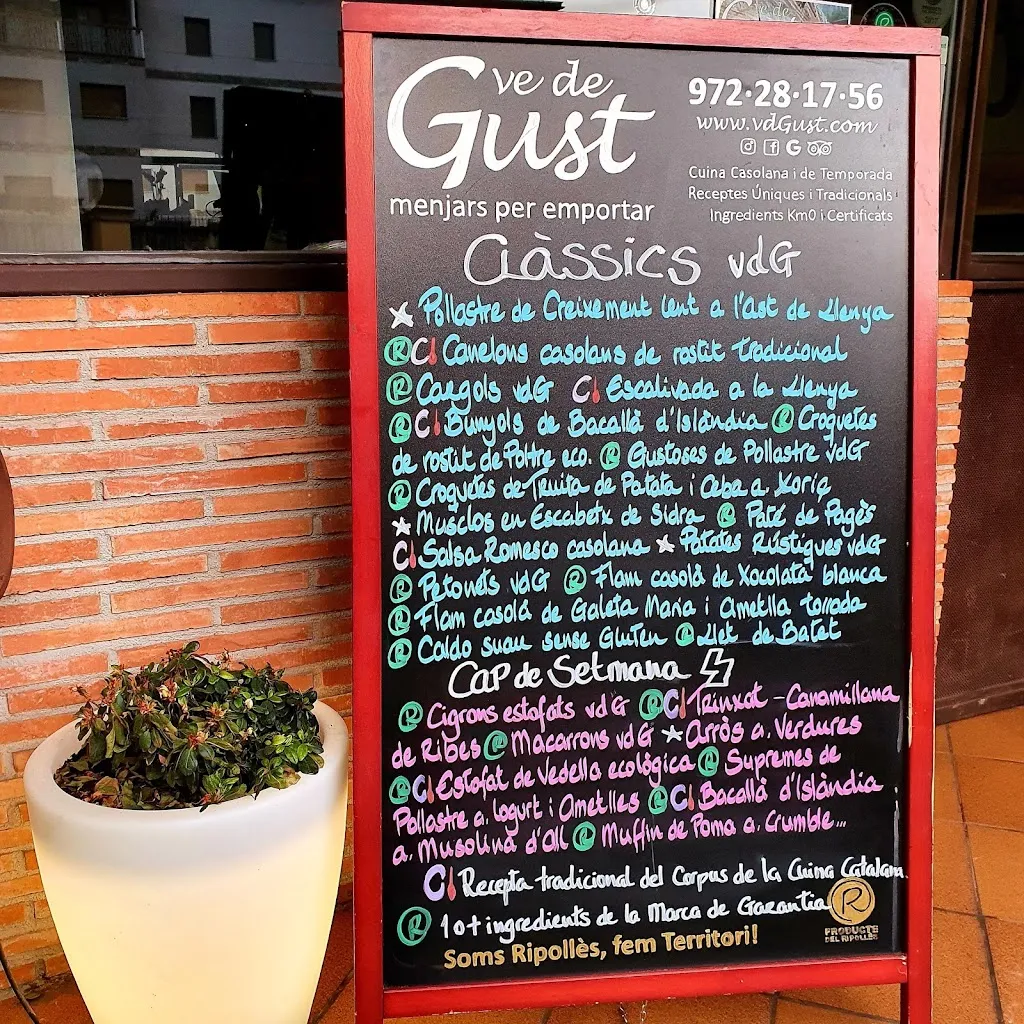 ve de
Gust
menjars per emportar
972·28·17·56
www.vdGust.com
Cuina Casolana i de Temporada
Receptes Úniques i Tradicionals
Ingredients Km0 i Certificats
Clàssics vdG
Pollastre de Creixement lent a l'ast de Llenya
R C Canelons casolans de rostit tradicional
R Cargols vdG C Escalivada a la Llenya
R C Bunyols de Bacallà d'Islàndia R Croquetes
de rostit de Poltre eco. R Gustoses de Pollastre vdG
R Croquetes de Truita de Patata i Ceba a. Xoriç
Musclos en Escabetx de Sidra R Paté de Pagès
C Salsa Romesco casolana Patates Rústiques vdG
R Petonets vdG R Flam casolà de Xocolata blanca
R Flam casolà de Galeta Maria i Ametlla torrada
R Caldo suau sense Gluten R Llet de Batet
Cap de Setmana
R Cigrons estofats vdG R C Trinxat - Canamillana
de Ribes R Macarrons vdG Arròs a. Verdures
R C Estofat de Vedella ecològica R Supremes de
Pollastre a. Iogurt i Ametlles R C Bacallà d'Islàndia
a. Musolina d'All R Muffin de Poma a. Crumble...
C Recepta tradicional del Corpus de la Cuina Catalana
R 1 o + ingredients de la Marca de Garantia
R
PRODUCTE
DEL RIPOLLÈS
Soms Ripollès, fem Territori!